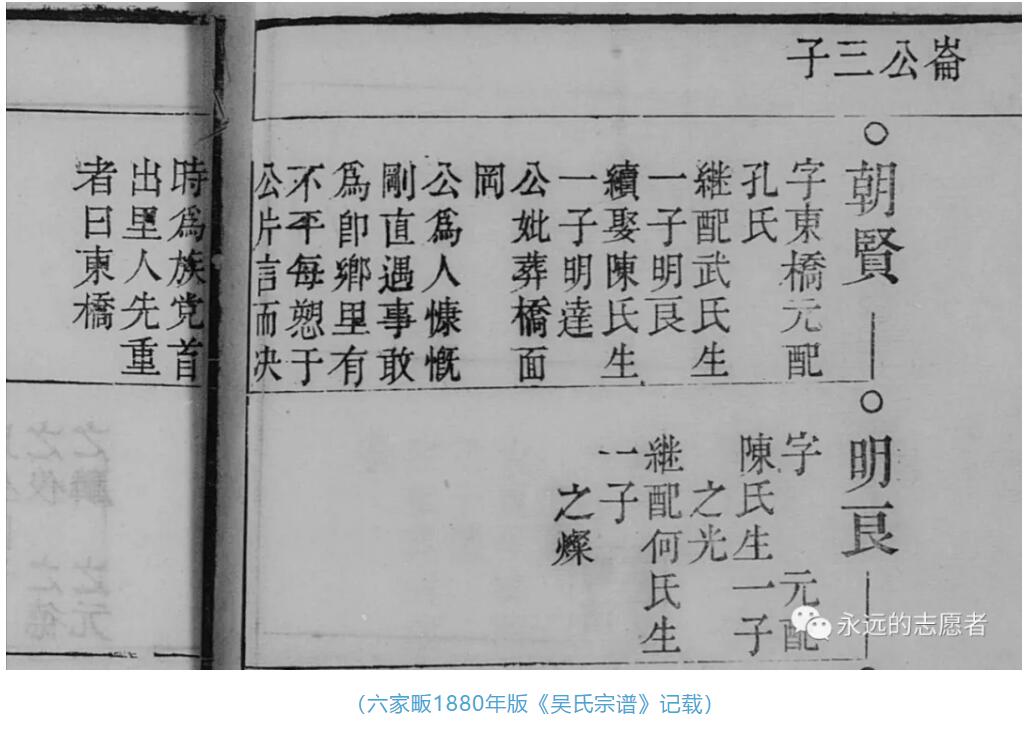 崙公三子
朝賢
字東橋元配
孔氏
継配武氏生
一子明良
續娶陳氏生
一子明達
公妣葬橋面
岡
公爲人慷慨
剛直遇事敢
爲卽鄉里有
不平每愬于
公片言而决
時爲族党首
出里人先重
者曰東橋
明良
字 元配
陳氏生一子
之光
継配何氏生
一子
之燦
永远的志愿者
（六家畈1880年版《吴氏宗谱》记载）